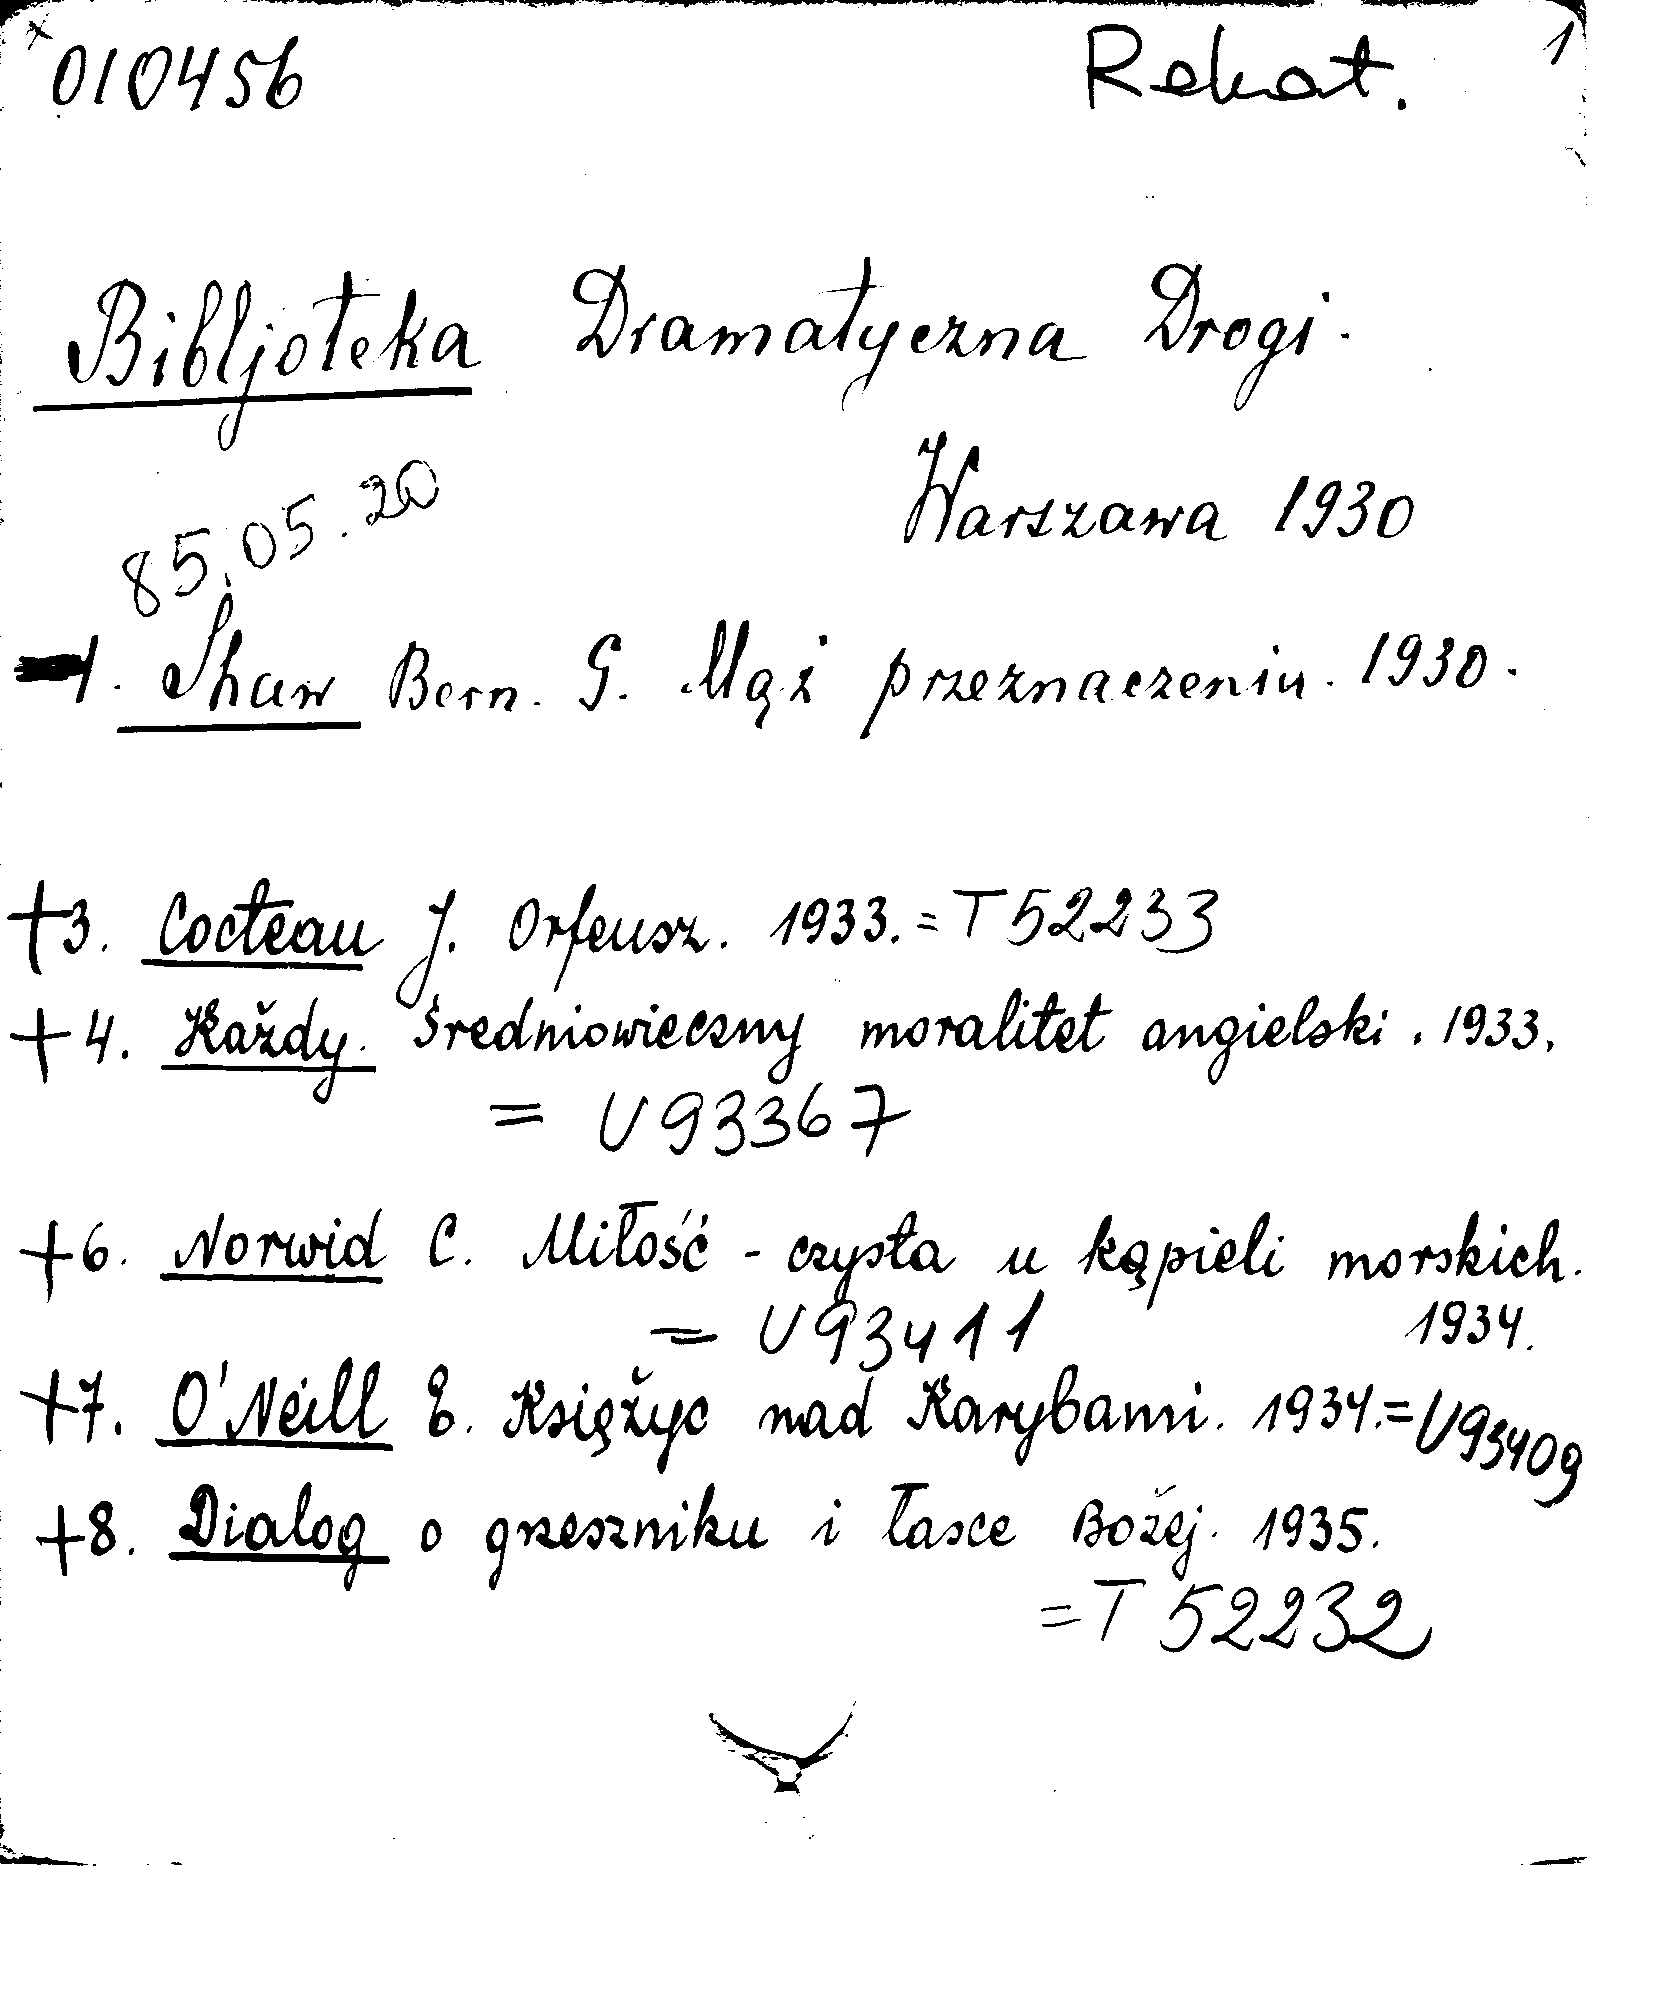 x 010456 Rekat. 1
Bibljoteka Dramatyczna Drogi.
Warszawa 1930
85.05.20
1. Shaw Bern. G. Mąż przeznaczeniu. 1930.
+3. Cocteau J. Orfeusz. 1933. = T52233
+4. Każdy. Średniowieczny moralitet angielski. 1933.
= U93367
+6. Norwid C. Miłość - czysta u kąpieli morskich.
= U93411 1934.
+7. O'Neill E. Księżyc nad Karybami. 1934. = U93409
+8. Dialog o grzeszniku i łasce Bożej. 1935.
= T 52232